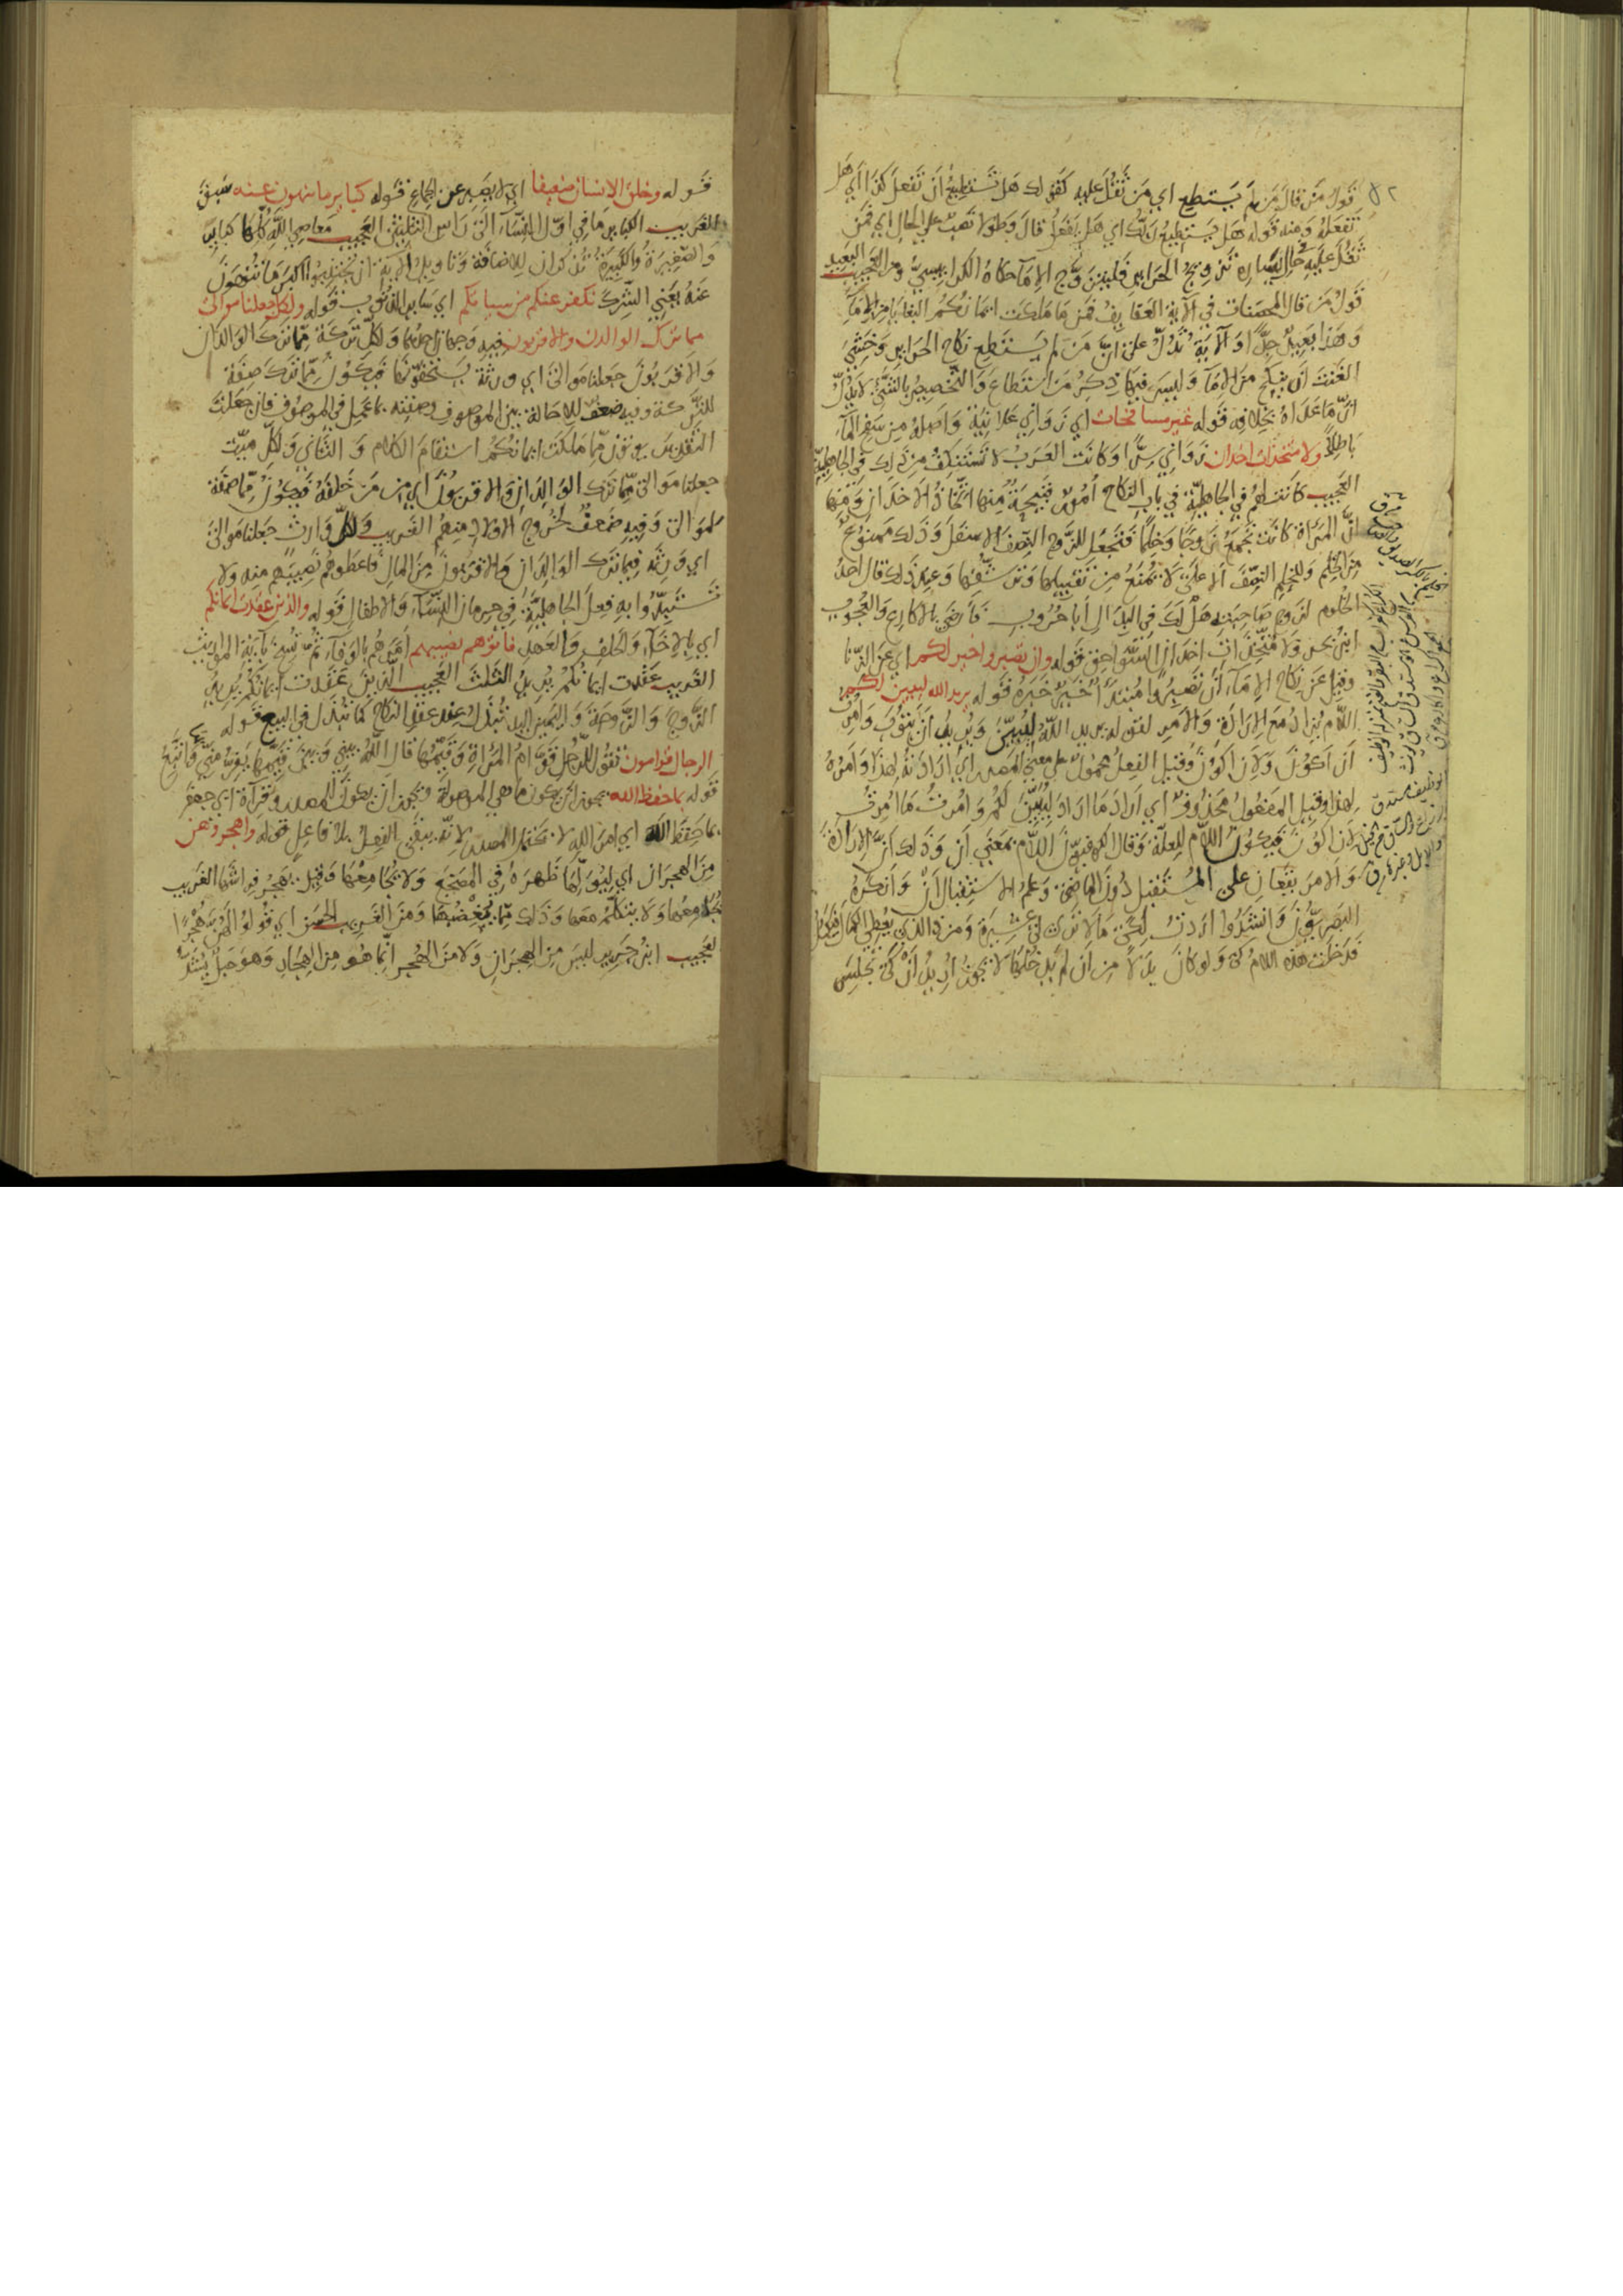 قول من قال من لم يستطع اي من ثقل عليه كقولك هل تستطيع ان تفعل كذا اي هل
تفعله ومنه قوله هل يستطيع ربك اي هل يفعل قال وطولا نصب على الحال اي فمن
ثقل عليه في حال يساره تزويج الحراير فليتزوج الاما حكاه الكرابيسي ومن العجيب البعيد
قول من قال المحصنات في الآية العفايف فمن ما ملكت ايمانكم البغايا من الاماء
وهذا بعيد جدا والآية تدل على ان من لم يستطع نكاح الحراير وخشي
العنت ان ينكح من الاما وليس فيها ذكر من استطاع والتخصيص بالشيء لا يدل
ان ما عداه بخلافه قوله غير مسافحات اي زواني علانية واصله من سفح الماء
باطلا ولا متخذات اخدان زواني سرا وكانت العرب لا تستنكف من ذلك في الجاهلية
العجيب كانت لهم في الجاهلية في باب النكاح امور قبيحة منها اتخاذ الاخدان ومنها
ان المرأة كانت تجمع زوجا وخلما فتجعل للزوج النصف الاسفل وذلك ممنوع
من الخلم وللخلم النصف الاعلى لا تمنع من تقبيلها وترشفها وعند ذلك قال احد
الخلوم لزوج صاحبته هل لك في البدال ابا خروب فارضى بالاكارع والعجوب
ابن بحر ولا متخذات اخدان السواحق قوله وان تصبروا خير لكم اي عن الزنا
وقيل عن نكاح الاماء ان تصبروا مبتدأ خير خبره قوله يريد الله ليبين لكم
اللام يزاد مع الارادة والامر لقوله يريد الله ليبين ويريد ان يتوب وامرت
ان اكون ولان اكون وقيل الفعل محمول على معنى المصدر اي ارادته لهذا وامره
لهذا وقيل المفعول محذوف اي اراد ما اراد ليبين لكم وامرت ما امرت
لان اكون فيكون اللام للعلة وقال الكوفيون اللام بمعنى ان وذلك ان الارادة
والامر يقعان على المستقبل دون الماضي وعلم الاستقبال ان وانكره
البصريون وانشدوا اردت لكي ما لا ترى لي عشرة ومن ذا الذي يعطى الكمال فيكمل
فدخلت هذه اللام كي ولو كان بدلا من ان لم يدخلها لا يجوز اريد ان كي تجلس
قوله وخلق الانسان ضعيفا اي لا يصبر عن الجماع قوله كباير ما تنهون عنه سبق
الغريب الكباير ما في اول النساء الى راس الثلثين العجيب معاصي الله كلها كباير
والصغيرة والكبيرة تذكران للاضافة وتاويل الآية ان تجتنبوا اكبر ما تنهون
عنه يعني الشرك نكفر عنكم من سياتكم اي ساير الذنوب قوله ولكل جعلنا موالي
مما ترك الوالدان والاقربون فيه وجهان احدهما ولكل تركة مما ترك الوالدان
والاقربون جعلنا موالي اي ورثة يستحقونها فيكون مما ترك صفة
للتركة وفيه ضعف للاحالة بين الموصوف وصفته بما عمل في الموصوف فان جعلت
التقدير يورثون مما ملكت ايمانكم استقام الكلام والثاني ولكل ميت
جعلنا موالي مما ترك الوالدان والاقربون اي من من خلفه فيكون مما صفة
لموالي وفيه ضعف لخروج الاولاد منهم الغريب ولكل وارث جعلنا موالي
اي ورثة فيما ترك الوالدان والاقربون من المال فاعطوهم نصيبهم منه ولا
تستبدوا به فعل الجاهلية في حرمان النساء والاطفال قوله والذين عقدت ايمانكم
اي بالاخاء والحلف والعهد فاتوهم نصيبهم امرهم بالوفاء ثم نسخ بآية المواريث
الغريب عقدت ايمانكم يريد الثلث العجيب الذين عقدت ايمانكم يريد
الزوج والزوجة واليمين اليد تبذل عند عقد النكاح كما تبذل في البيع قوله
الرجال قوامون تقول للرجل قوام المرأة وقيمها قال الله بيني وبين قيمها يفر مني واتبع
قوله بما حفظ الله يجوز ان يكون ما هي الموصولة ويجوز ان يكون للمصدر وقرآة ابي جعفر
بما حفظ الله اي امر الله لا تحتمل المصدر لانه يبقى الفعل بلا فاعل قوله واهجروهن
من الهجران اي ليول لها ظهره في المضجع ولا يجامعها وقيل يهجر فراشها الغريب
يجامعها ولا يتكلم معها وذلك مما يبغضها ومن الغريب الحسن اي قولوا لهن هجرا
لعجيب ابن جرير ليس من الهجران ولا من الهجر انما هو من الهجار وهو حبل يشد به